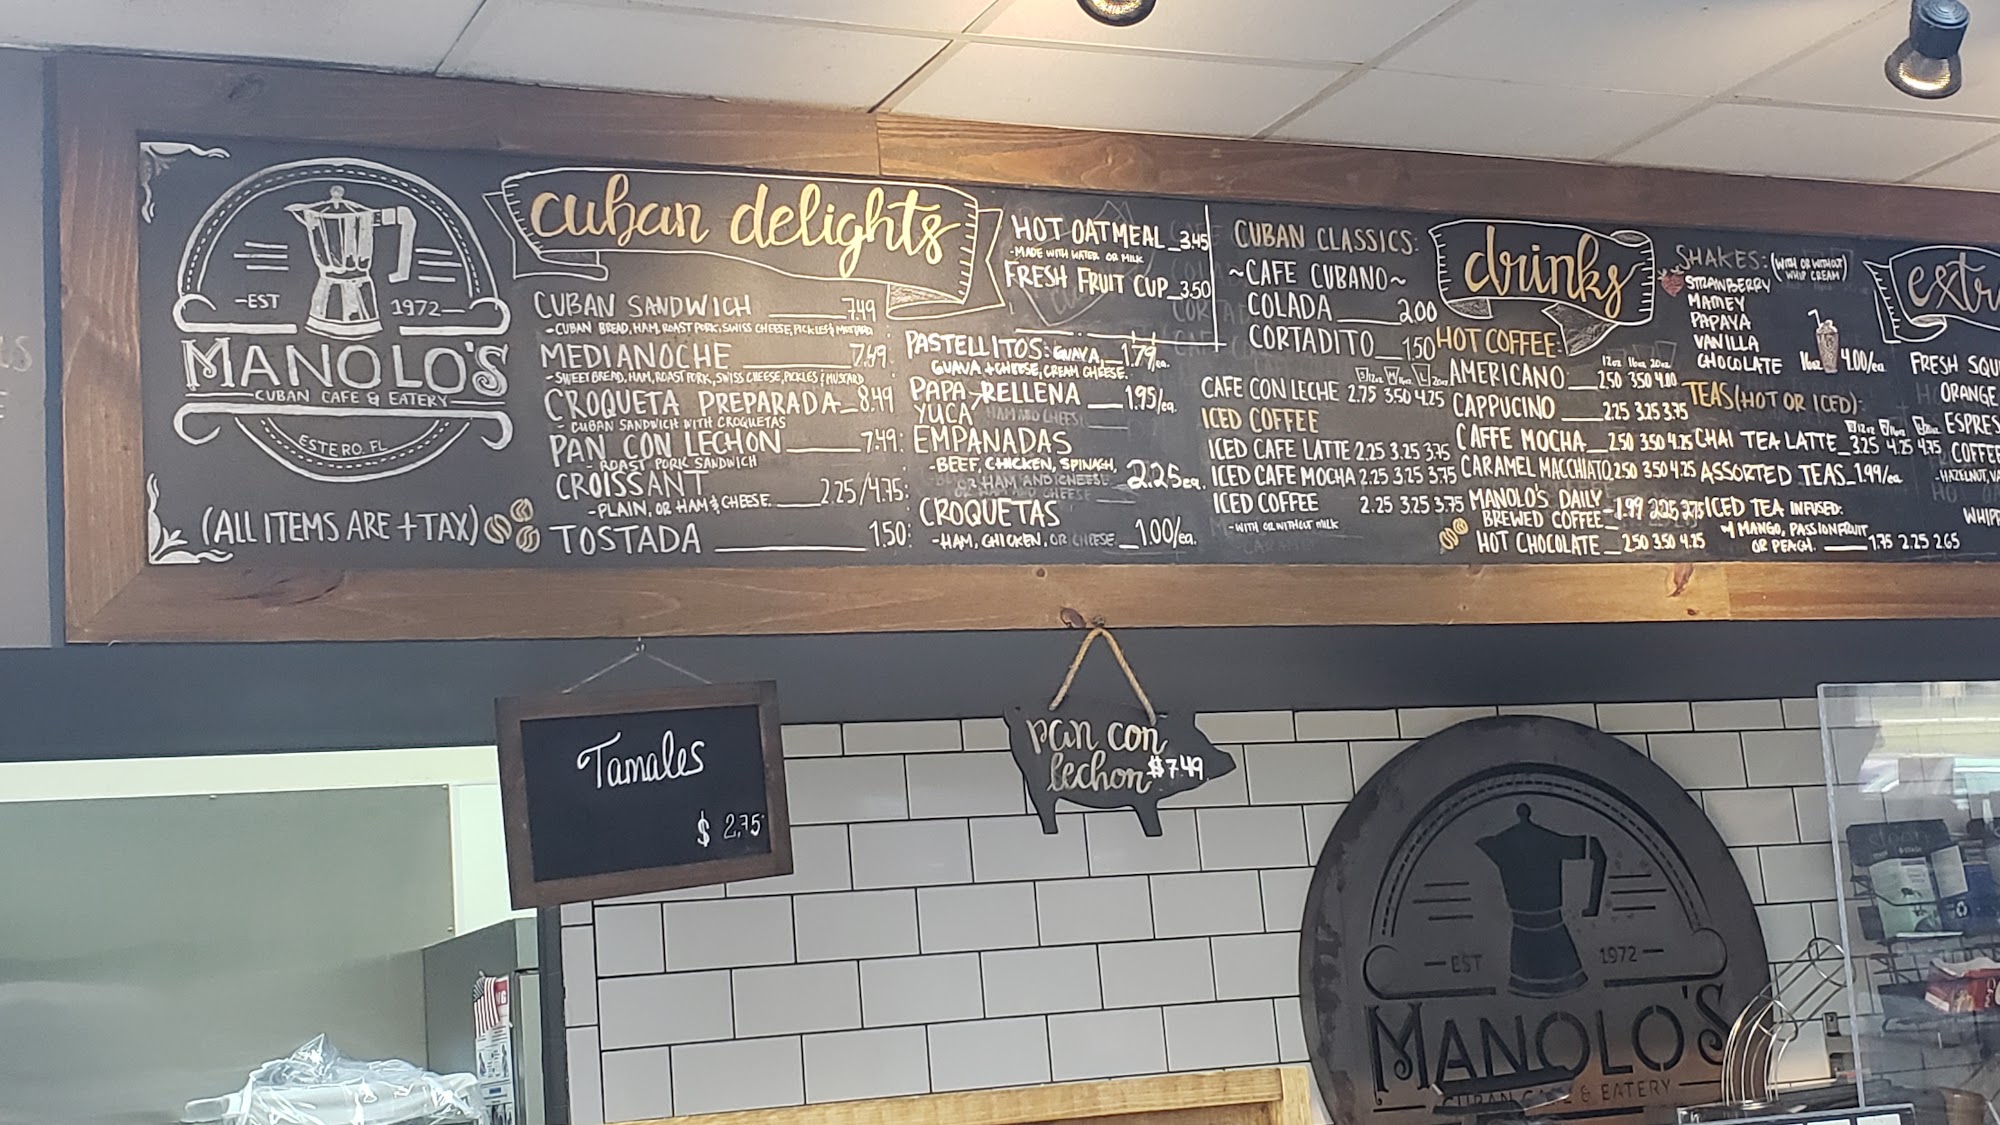 EST 1972
MANOLO'S
CUBAN CAFE & EATERY
ESTERO, FL
(ALL ITEMS ARE + TAX)
cuban delights
CUBAN SANDWICH 7.49
-CUBAN BREAD, HAM, ROAST PORK, SWISS CHEESE, PICKLES & MUSTARD
MEDIANOCHE 7.49:
-SWEET BREAD, HAM, ROAST PORK, SWISS CHEESE, PICKLES & MUSTARD
CROQUETA PREPARADA 8.49
- CUBAN SANDWICH WITH CROQUETAS
PAN CON LECHON 7.49:
- ROAST PORK SANDWICH
CROISSANT 2.25/4.75:
-PLAIN, OR HAM & CHEESE
TOSTADA 1.50:
HOT OATMEAL 3.45
-MADE WITH WATER OR MILK
FRESH FRUIT CUP 3.50
PASTELLITOS: GUAVA, 1.79/ea.
GUAVA + CHEESE, CREAM CHEESE.
PAPA RELLENA 1.95/ea.
YUCA
EMPANADAS
-BEEF, CHICKEN, SPINACH, 2.25ea.
OR HAM AND CHEESE
CROQUETAS
-HAM, CHICKEN, OR CHEESE 1.00/ea.
CUBAN CLASSICS:
~CAFE CUBANO~
COLADA 2.00
CORTADITO 1.50
S/12oz M/16oz L/20oz
CAFE CON LECHE 2.75 3.50 4.25
ICED COFFEE
ICED CAFE LATTE 2.25 3.25 3.75
ICED CAFE MOCHA 2.25 3.25 3.75
ICED COFFEE 2.25 3.25 3.75
-WITH OR WITHOUT MILK
drinks
HOT COFFEE:
12oz 16oz 20oz
AMERICANO 2.50 3.50 4.00
CAPPUCINO 2.25 3.25 3.75
CAFFE MOCHA 2.50 3.50 4.25
CARAMEL MACCHIATO 2.50 3.50 4.25
MANOLO'S DAILY 1.99 2.25 2.75
BREWED COFFEE
HOT CHOCOLATE 2.50 3.50 4.25
SHAKES: (WITH OR WITHOUT WHIP CREAM)
STRAWBERRY
MAMEY
PAPAYA
VANILLA
CHOCOLATE 16oz 4.00/ea
TEAS (HOT OR ICED):
CHAI TEA LATTE 3.25 4.25 4.75
ASSORTED TEAS 1.99/ea
ICED TEA INFUSED:
w/ MANGO, PASSIONFRUIT,
OR PEACH. 1.75 2.25 2.65
extr
FRESH SQU
ORANGE
ESPRES
COFFEE
-HAZELNUT, VA
WHIPP
Tamales
$ 2.75
pan con
lechon $7.49
EST 1972
MANOLO'S
CUBAN CAFE & EATERY